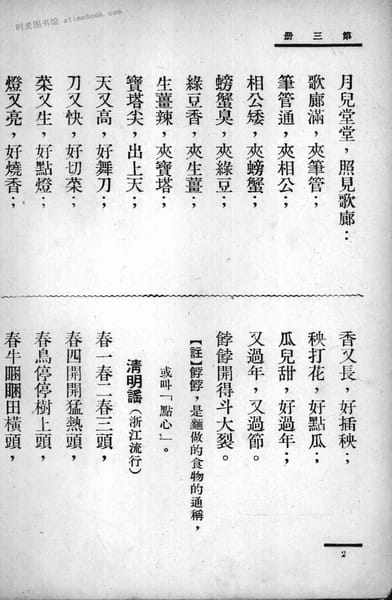 时光图书馆 atimebook.com
第三册
月兒堂堂，照見歌廊：
歌廊滿，夾筆管；
筆管通，夾相公；
相公矮，夾螃蟹；
螃蟹臭，夾綠豆；
綠豆香，夾生薑；
生薑辣，夾寶塔；
寶塔尖，出上天；
天又高，好舞刀；
刀又快，好切菜；
菜又生，好點燈；
燈又亮，好燒香；
香又長，好插秧；
秧打花，好點瓜；
瓜兒甜，好過年；
又過年，又過節。
餑餑開得斗大裂。
【註】餑餑，是麵做的食物的通稱，
或叫「點心」。
清明謠（浙江流行）
春一春二春三頭，
春四開開猛熱頭，
春鳥停停樹上頭，
春牛睏睏田橫頭，
2